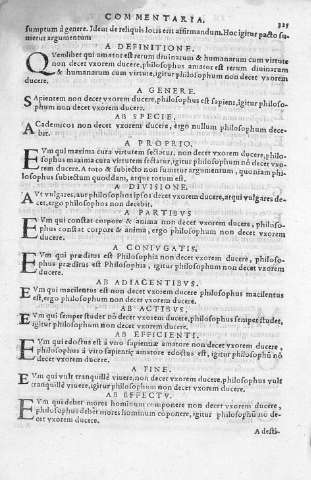 COMMENTARIA. 325
sumptum à genere. Idem de reliquis locis est affirmandum. Hoc igitur pacto su-
metur argumentum
A DEFINITIONE.
QVemliber qui amator est rerum diuinarum & humanarum cum virtute
non decet vxorem ducere, philosophus amator est rerum diuinarum
& humanarum cum virtute, igitur philosophum non decet vxorem
ducere.
A GENERE.
SApientem non decet vxorem ducere, philosophus est sapiens, igitur philoso-
phum non decet vxorem ducere.
AB SPECIE.
ACademicos non decet vxorem ducere, ergo nullum philosophum dece-
bit.
A PROPRIO.
EVm qui maxima cura virtutem sectatur, non decet vxorem ducere, philo-
sophus maxima cura virtutem sectatur, igitur philosophum nō decet vxo-
rem ducere. A toto & subiecto non sumitur argumentum, quoniam phi-
losophus subiectum quoddam, atque totum est.
A DIVISIONE.
AVt vulgares, aut philosophos ipsos decet vxorem ducere, atqui vulgares de-
cet, ergo philosophos non decebit.
A PARTIBVS
EVm qui constat corpore & anima non decet vxorem ducere, philoso-
phus constat corpore & anima, ergo philosophum non decet vxorem
ducere.
A CONIVGATIS.
EVm qui præditus est Philosophia non decet vxorem ducere, philoso-
phus præditus est Philosophia, igitur philosophum non decet vxorem
ducere.
AB ADIACENTIBVS.
EVm qui macilentus est non decet vxorem ducere philosophus macilentus
est, ergo philosophum non decet vxorem ducere.
AB ACTIBVS.
EVm qui semper studet nō decet vxorem ducere, philosophus semper studet,
igitur philosophum non decet vxorem ducere.
AB EFFICIENTI.
EVm qui edoctus est à viro sapientiæ amatore non decet vxorem ducere,
philosophus à viro sapientiæ amatore edoctus est, igitur philosophū nō
decet vxorem ducere.
A FINE.
EVm qui vult tranquillè viuere, non decet vxorem ducere, philosophus vult
tranquillè viuere, igitur philosophum non decet vxorem ducere.
AB EFFECTV.
EVm qui debet mores hominum componere, non decet vxorem ducere,
philosophus debet mores hominum cōponere, igitur philosophū no de-
cet vxorem ducere.
A desti-